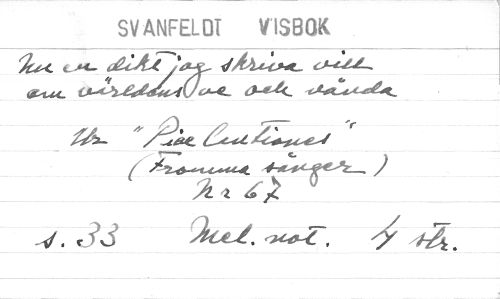 SVANFELDT VISBOK
Nu en dikt jag skriva vill
om världens ve och vånda
Ur "Piae Cantiones"
(Fromma sånger)
Nr 67
s. 33 Mel. not. 4 str.